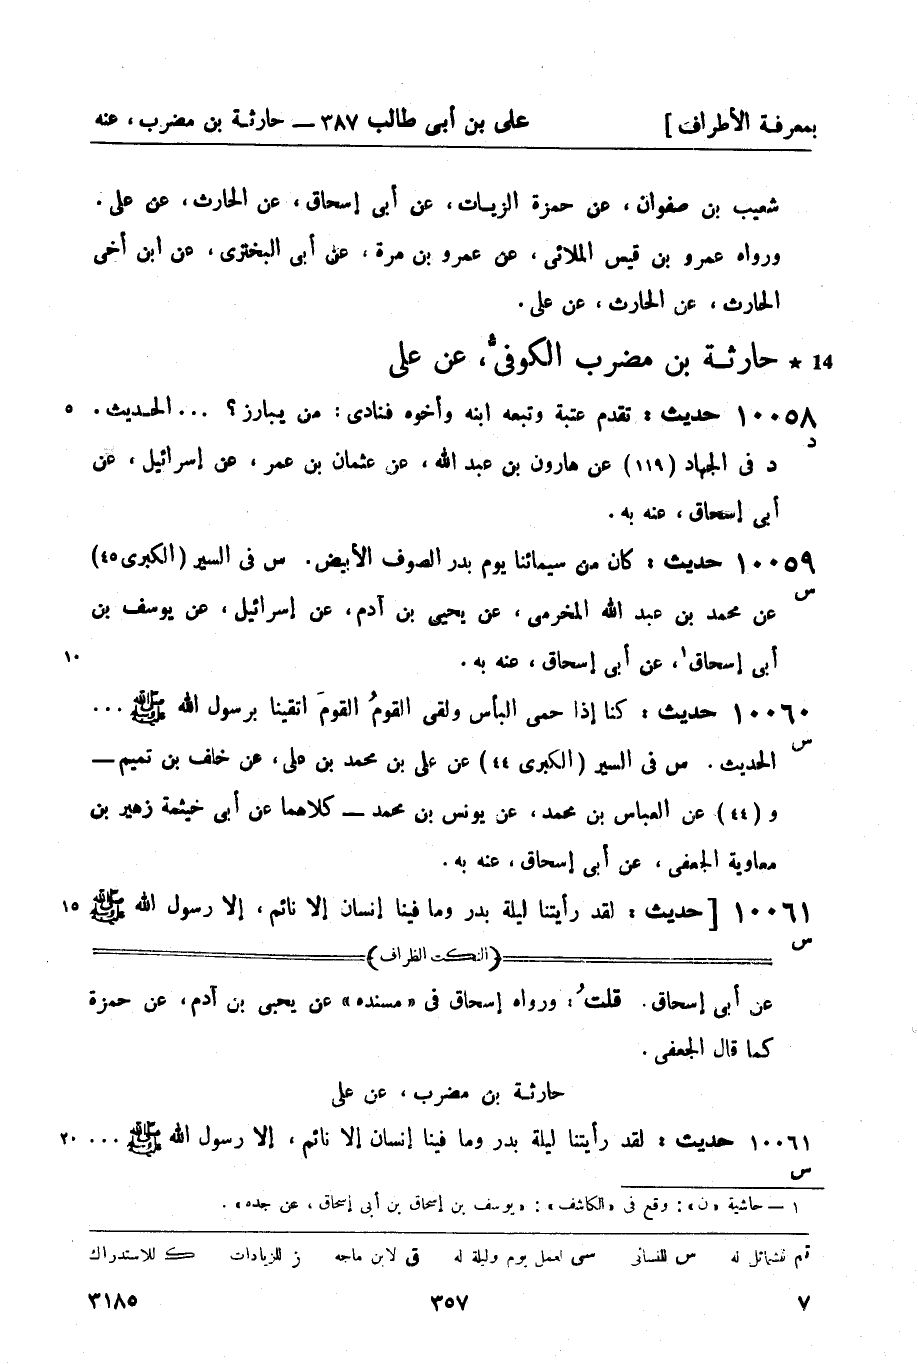 بمعرفة الأطراف ] على بن أبى طالب ٣٨٧ — حارثة بن مضرب ، عنه
شعيب بن صفوان ، عن حمزة الزيات ، عن أبى إسحاق ، عن الحارث ، عن على .
ورواه عمرو بن قيس الملائى ، عن عمرو بن مرة ، عن أبى البخترى ، عن ابن أخى
الحارث ، عن الحارث ، عن على .
14 * حارثة بن مضرب الكوفى ، عن على
١٠٠٥٨ حديث : تقدم عتبة وتبعه ابنه وأخوه فنادى : من يبارز ؟ ... الحديث . ٥
د
د فى الجهاد (١١٩) عن هارون بن عبد الله ، عن عثمان بن عمر ، عن إسرائيل ، عن
أبى إسحاق ، عنه به .
١٠٠٥٩ حديث : كان من سيمائنا يوم بدر الصوف الأبيض . س فى السير (الكبرى ٤٥)
س
عن محمد بن عبد الله المخرمى ، عن يحيى بن آدم ، عن إسرائيل ، عن يوسف بن
أبى إسحاق ١ ، عن أبى إسحاق ، عنه به . ١٠
١٠٠٦٠ حديث : كنا إذا حمى البأس ولقى القومُ القومَ اتقينا برسول الله ﷺ ...
س
الحديث . س فى السير (الكبرى ٤٤) عن على بن محمد بن على ، عن خلف بن تميم —
و (٤٤) عن العباس بن محمد ، عن يونس بن محمد — كلاهما عن أبى خيثمة زهير بن
معاوية الجعفى ، عن أبى إسحاق ، عنه به .
١٠٠٦١ [ حديث : لقد رأيتنا ليلة بدر وما فينا إنسان إلا نائم ، إلا رسول الله ﷺ ١٥
س
(النكت الظراف)
عن أبى إسحاق . قلتُ : ورواه إسحاق فى «مسنده» عن يحيى بن آدم ، عن حمزة
كما قال الجعفى .
حارثة بن مضرب ، عن على
١٠٠٦١ حديث : لقد رأيتنا ليلة بدر وما فينا إنسان إلا نائم ، إلا رسول الله ﷺ ... ٢٠
س
١ — حاشية «ن» : وقع فى «الكاشف» : «يوسف بن إسحاق بن أبى إسحاق ، عن جده» .
تم للشمائل له س للنسائى سى لعمل يوم وليلة له ق لابن ماجه ز للزيادات ك للاستدراك
٧ ٣٥٧ ٣١٨٥